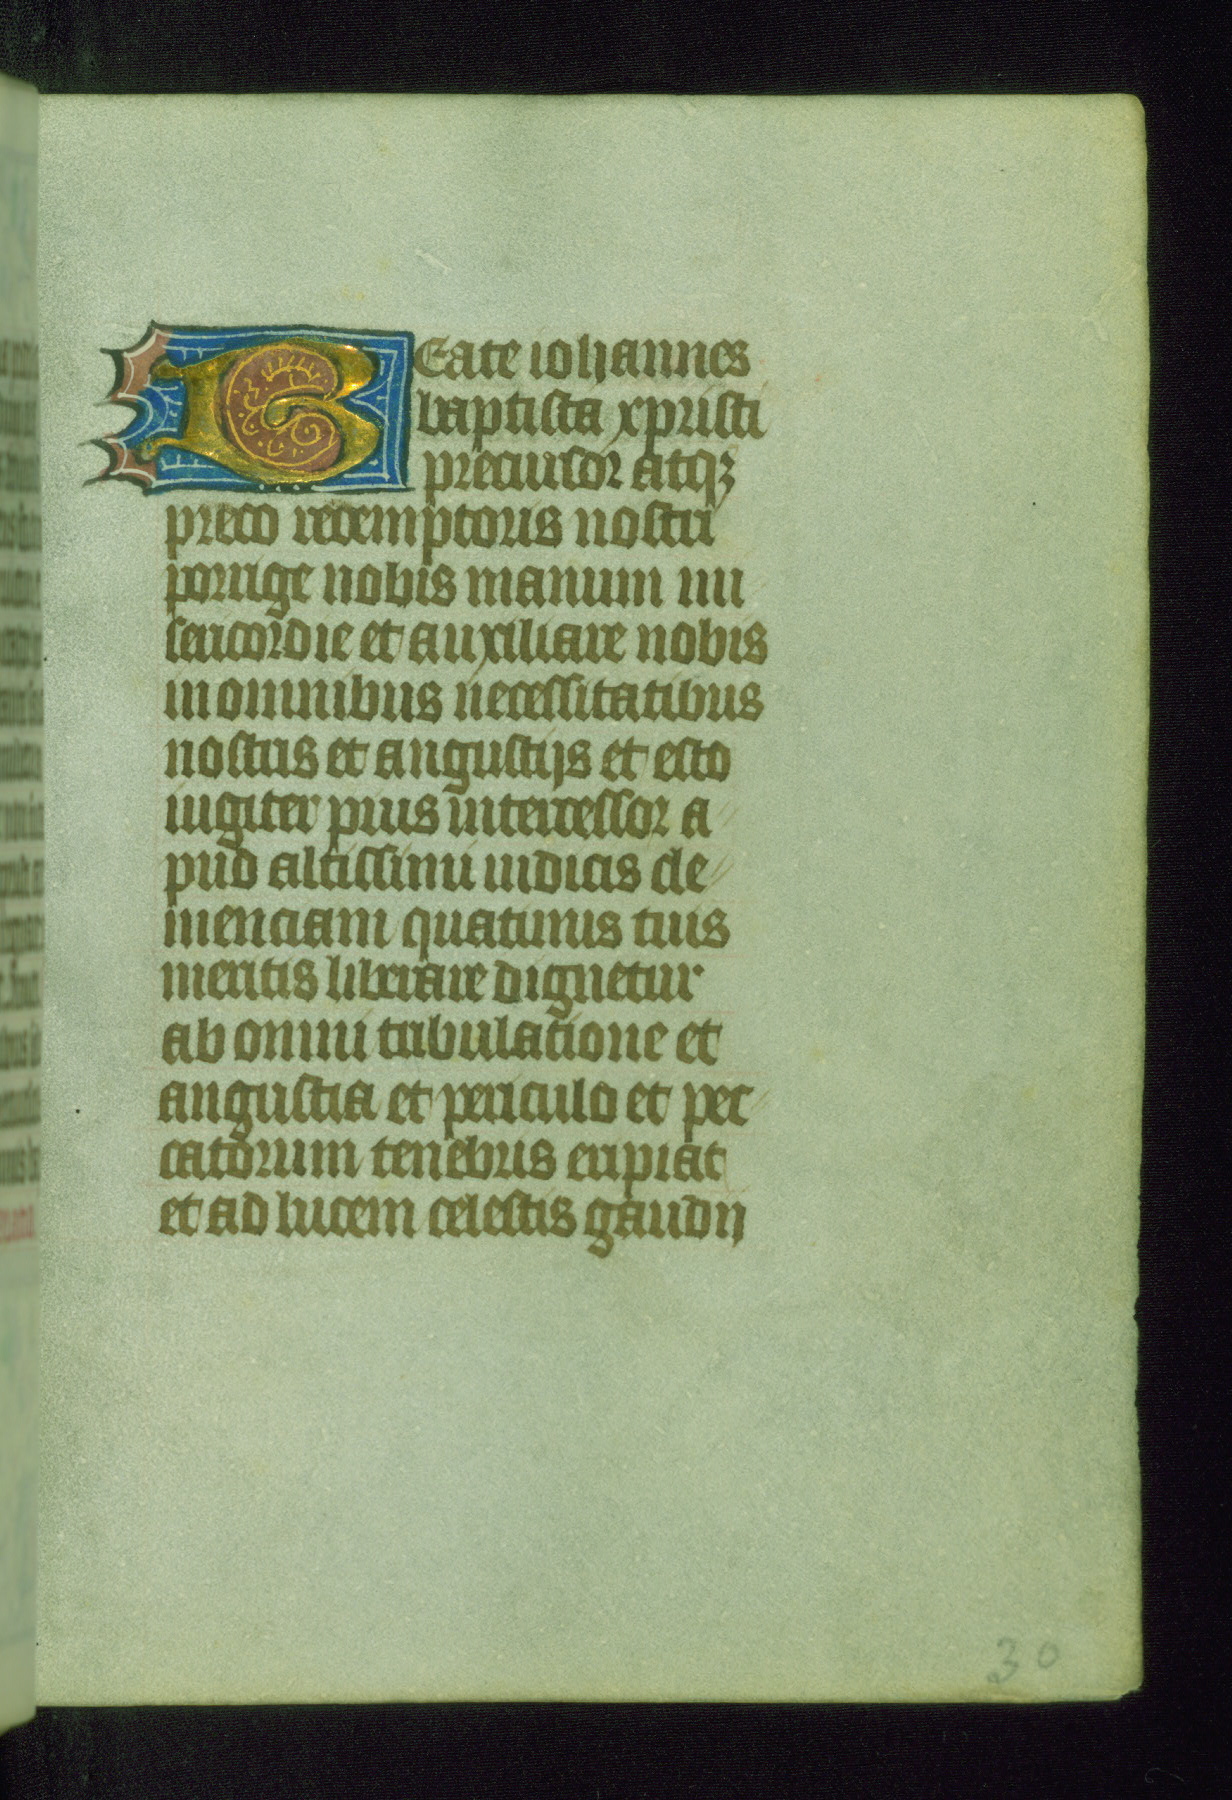 BEate iohannes
baptista xpristi
precursor atqz
preco redemptoris nostri
porrige nobis manum mi
sericordie et auxiliare nobis
in omnibus necessitatibus
nostris et angustijs et esto
iugiter pius intercessor a
pud altissimi iudicis cle
menciam quatinus tuis
meritis liberare dignetur
ab omni tribulatione et
angustia et periculo et pec
catorum tenebris eripiat
et ad lucem celestis gaudij
30